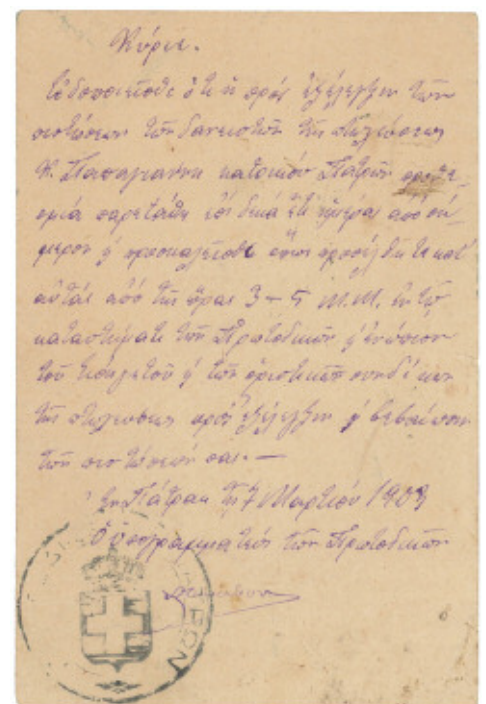 Κύριε.
Εἰδοποιεῖσθε ὅτι ἡ πρὸς ἐξέλεγξιν τῶν
πιστώσεων τῶν δανειστῶν τῆς πτωχεύσεως
Κ. Παπαγιάννη κατοίκου Πατρῶν προθε-
σμία παρετάθη ἐπὶ δέκα ἔτι ἡμέρας ἀπὸ σή-
μερον καὶ προσκαλεῖσθε ὅπως προσέλθητε κατ'
αὐτὰς ἀπὸ τῆς ὥρας 3 - 5 Μ.Μ. ἐν τῷ
καταστήματι τῶν Πρωτοδικῶν καὶ ἐνώπιον
τοῦ Εἰσηγητοῦ καὶ τῶν ὁριστικῶν συνδίκων
τῆς πτωχεύσεως πρὸς ἐξέλεγξιν καὶ βεβαίωσιν
τῶν πιστώσεών σας. —
Ἐν Πάτραις τῇ 7 Μαρτίου 1903
Ὁ ὑπογραμματεὺς τῶν Πρωτοδικῶν